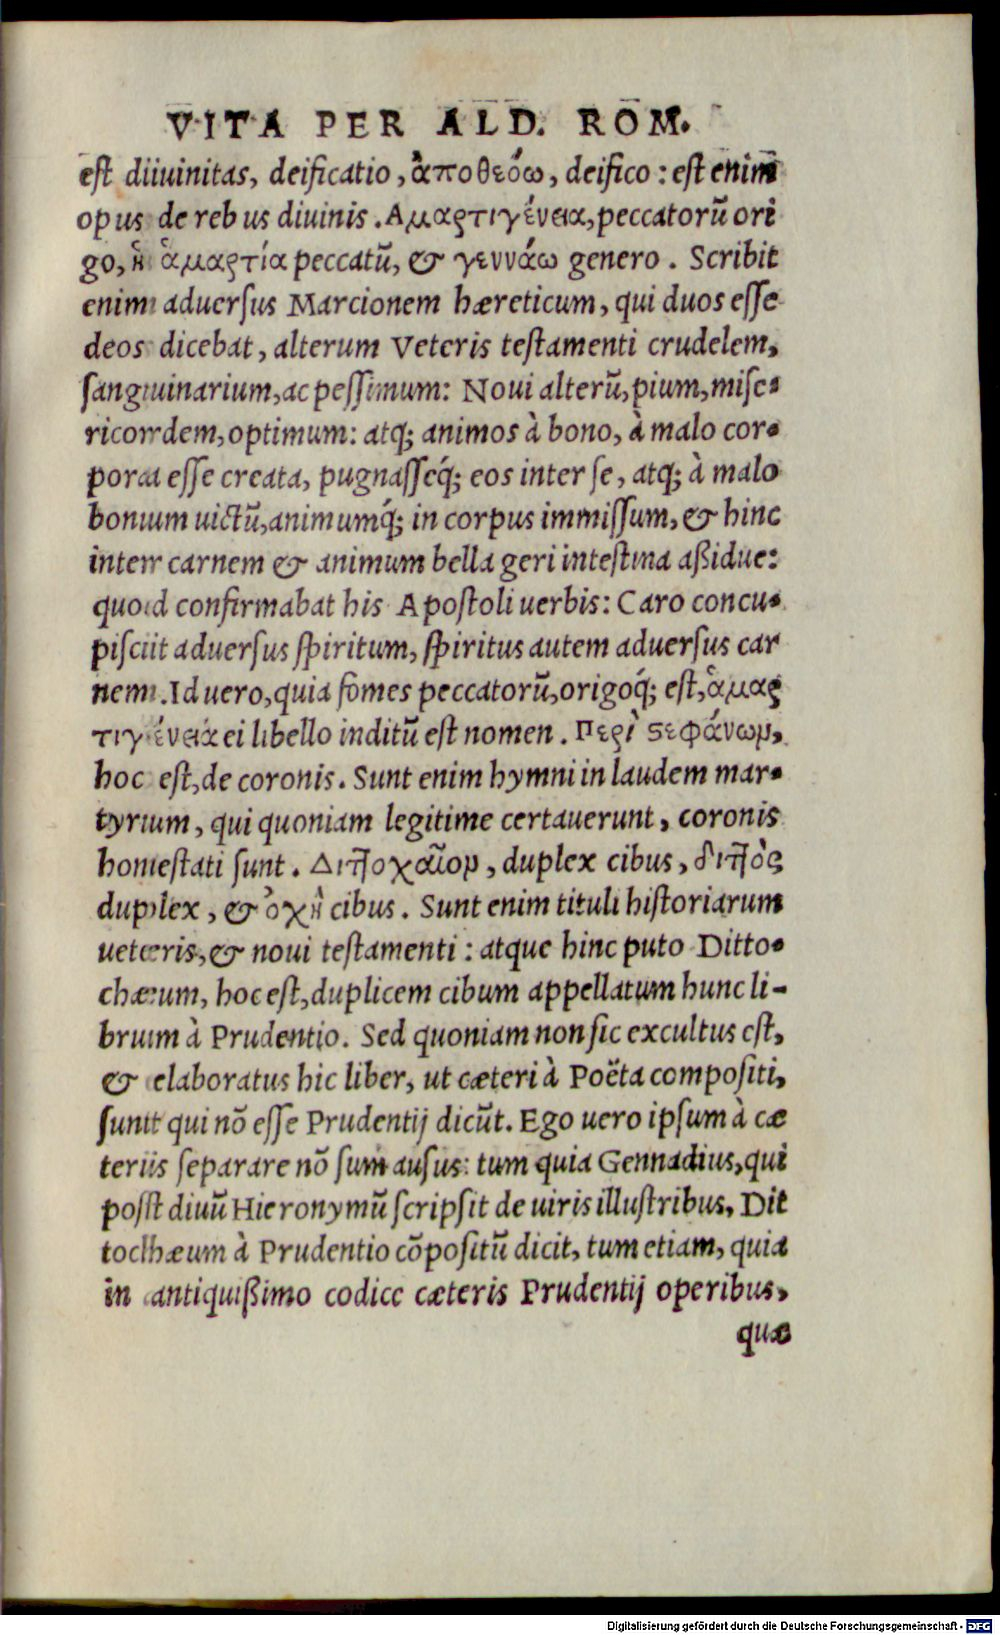 VITA PER ALD. ROM.
est diuinitas, deificatio, ἀποθεόω, deifico: est enim
opus de rebus diuinis. Αμαρτιγένεια, peccatorū ori
go, ἡ ἁμαρτία peccatū, & γεννάω genero. Scribit
enim aduersus Marcionem hæreticum, qui duos esse
deos dicebat, alterum Veteris testamenti crudelem,
sanguinarium, ac pessimum: Noui alterū, pium, mise-
ricordem, optimum: atq; animos à bono, à malo cor-
pora esse creata, pugnasseq́; eos inter se, atq; à malo
bonum uictū, animumq́; in corpus immissum, & hinc
inter carnem & animum bella geri intestina aßidue:
quod confirmabat his Apostoli uerbis: Caro concu-
piscit aduersus spiritum, spiritus autem aduersus car
nem. Id uero, quia fomes peccatorū, origoq́; est, ἁμαρ
τιγένεια ei libello inditū est nomen. Περὶ ϛεφάνωμ,
hoc est, de coronis. Sunt enim hymni in laudem mar-
tyrum, qui quoniam legitime certauerunt, coronis
honestati sunt. Διτ̃οχαῖομ, duplex cibus, διτ̃ὸς
duplex, & ὀχὴ cibus. Sunt enim tituli historiarum
ueteris, & noui testamenti: atque hinc puto Ditto-
chæum, hoc est, duplicem cibum appellatum hunc li-
brum à Prudentio. Sed quoniam non sic excultus est,
& elaboratus hic liber, ut cæteri à Poëta compositi,
sunt qui nō esse Prudentij dicūt. Ego uero ipsum à cæ
teris separare nō sum ausus: tum quia Gennadius, qui
post diuū Hieronymū scripsit de uiris illustribus, Dit
tochæum à Prudentio cōpositū dicit, tum etiam, quia
in antiquißimo codice cæteris Prudentij operibus,
quæ
Digitalisierung gefördert durch die Deutsche Forschungsgemeinschaft - DFG